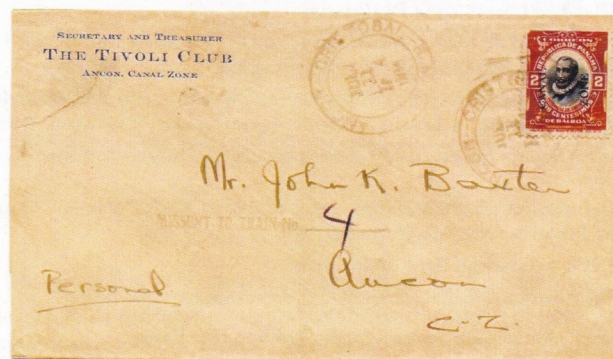 SECRETARY AND TREASURER
THE TIVOLI CLUB
ANCON, CANAL ZONE
CORREOS
REPUBLICA DE PANAMA
CANAL ZONE
2 2
DOS CENTESIMOS
DE BALBOA
Mr. John K. Baxter
MISSENT TO TRAIN No. 4
Ancon
C.Z.
Personal